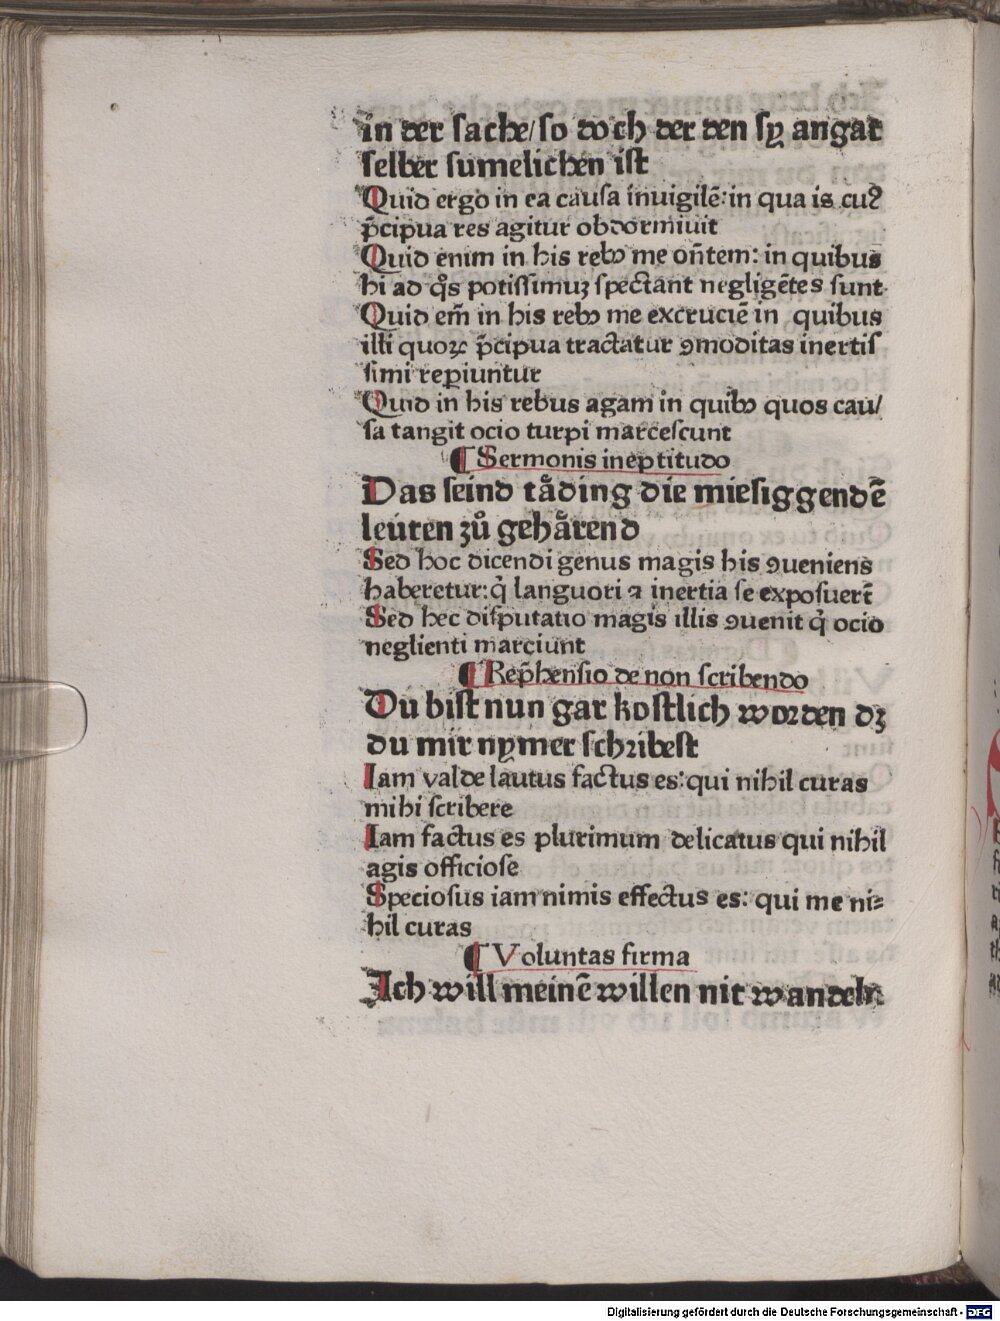 in der sache/so doch der den sy angat
selber sumelichen ist
Quid ergo in ea causa inuigilē: in qua is cuꝰ
p̄cipua res agitur obdormiuit
Quid enim in his rebꝫ me on̄tem: in quibus
hi ad qͦs potissimuꝫ spectant negligētes sunt
Quid em̄ in his rebꝫ me excruciē in quibus
illi quoꝝ p̄cipua tractatur ꝯmoditas inertis
simi reperiuntur
Quid in his rebus agam in quibꝫ quos cau/
sa tangit ocio turpi marcescunt
¶ Sermonis ineptitudo
Das seind tåding die miesiggendē
leúten zů gehårend
Sed hoc dicendi genus magis his ꝯueniens
haberetur: q̇ languori ⁊ inertia se exposuerт̄
Sed hec disputatio magis illis ꝯuenit q̇ ocio
neglienti marciunt
¶ Rep̄hensio de non scribendo
Du bist nun gar kostlich worden dꝫ
du mir nymer schribest
Iam valde lautus factus es: qui nihil curas
mihi scribere
Iam factus es plurimum delicatus qui nihil
agis officiose
Speciosus iam nimis effectus es: qui me ni⸗
hil curas
¶ Voluntas firma
Ich will meinē willen nit wandeln
Digitalisierung gefördert durch die Deutsche Forschungsgemeinschaft - DFG